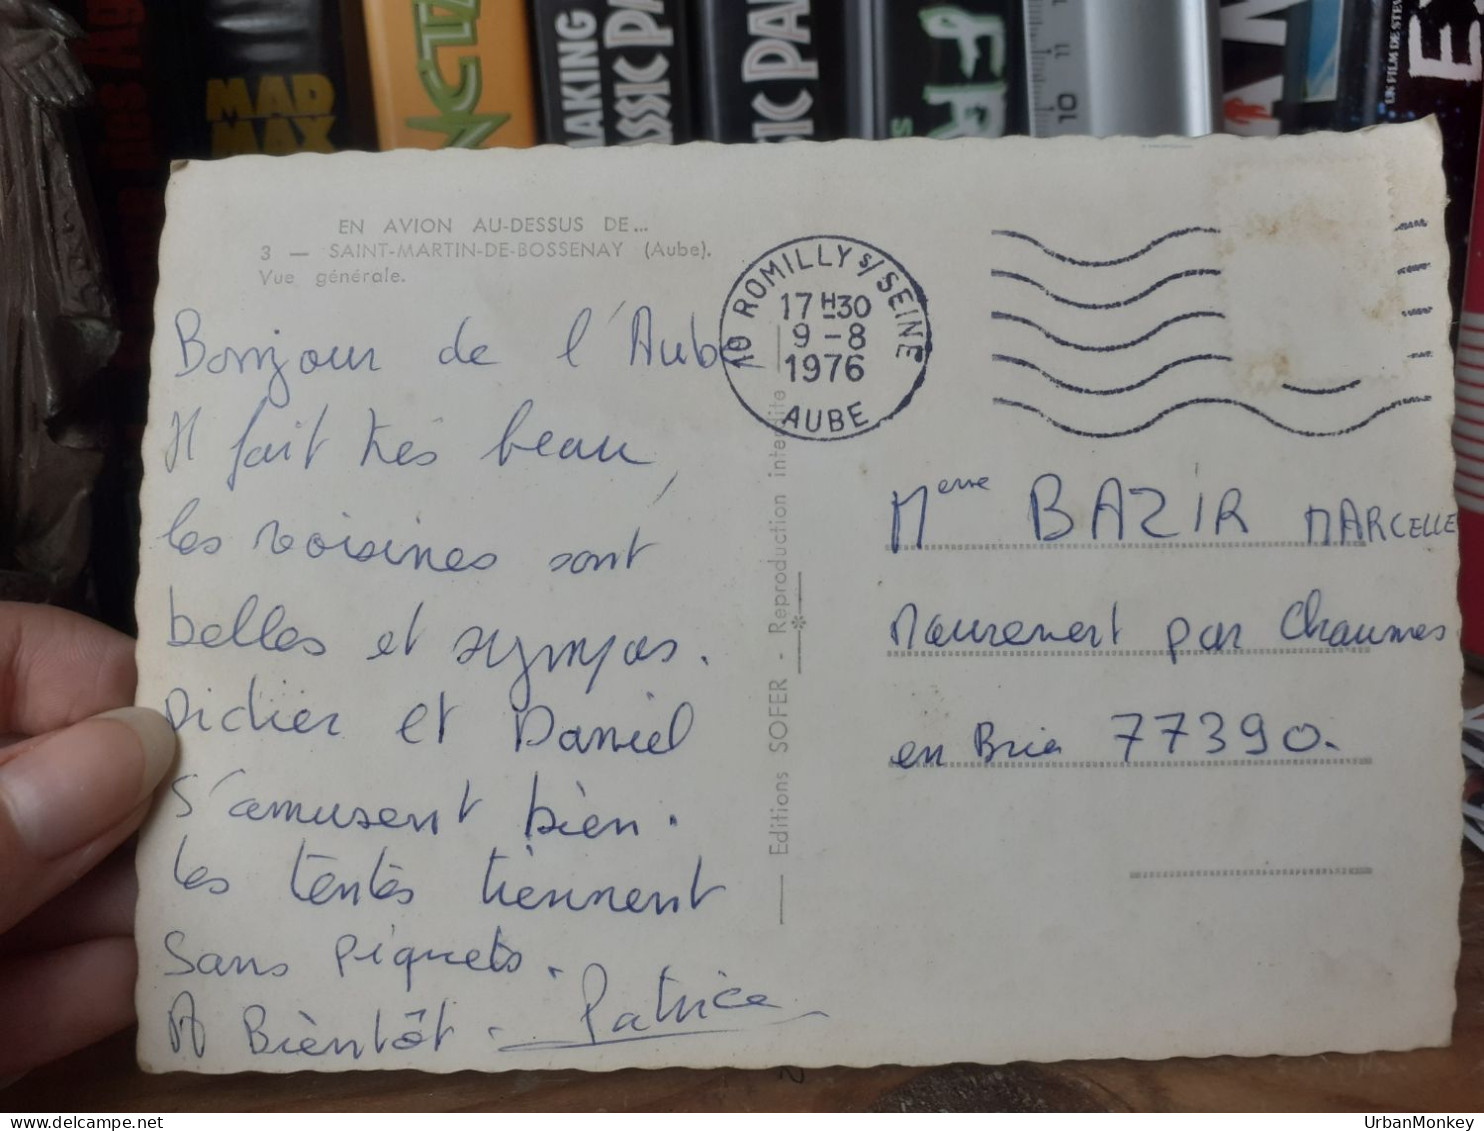 MAD
MAX
MAKING
EN AVION AU-DESSUS DE...
3 — SAINT-MARTIN-DE-BOSSENAY (Aube).
Vue générale.
10 ROMILLY S/ SEINE
17 H 30
9 - 8
1976
AUBE
Bonjour de l'Aube
Il fait très beau,
les voisines sont
belles et sympas.
Didier et Daniel
s'amusent bien.
les tentes tiennent
sans piquets.
A Bientôt. Patrice
Editions SOFER - Reproduction interdite
Mme BAZIR MARCELLE
par Chaumes
en Brie 77390.
UrbanMonkey